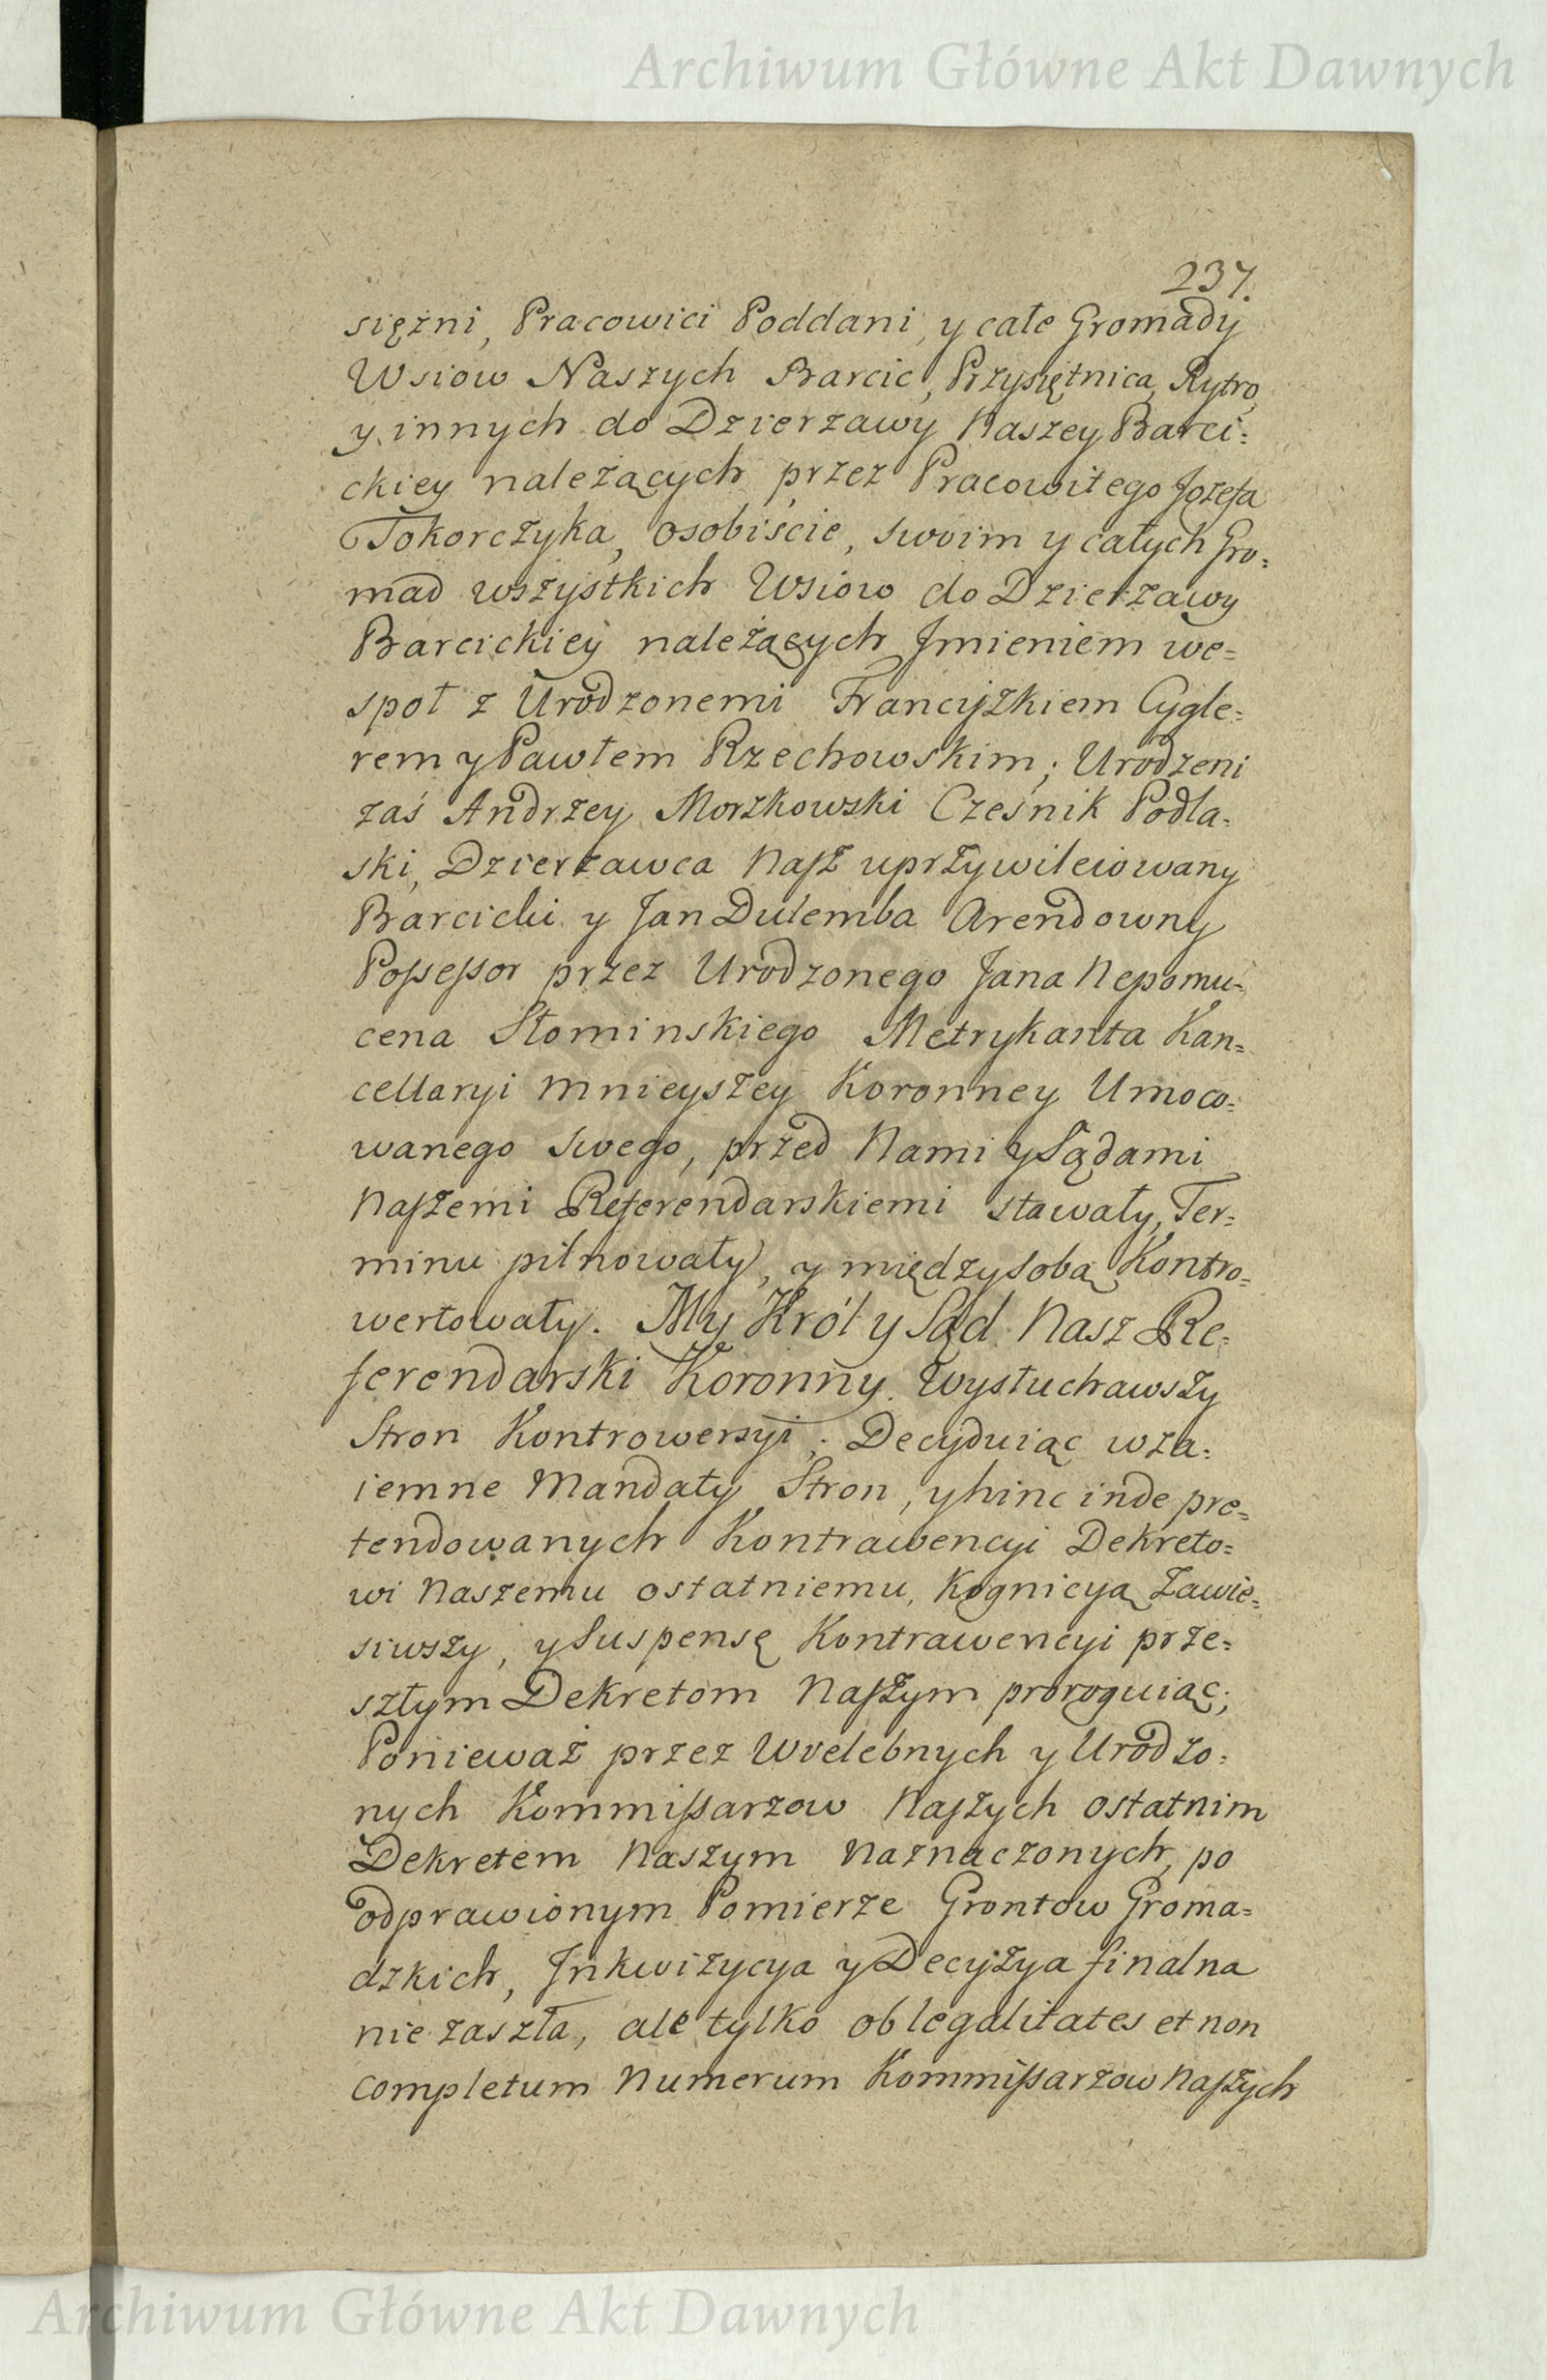 Archiwum Główne Akt Dawnych
237.
siężni, Pracowici Poddani, y całe Gromady
Wsiow Naszych Barcic, Przysiętnica, Rytro,
y innych do Dzierzawy Naszey Barci=
ckiey należących przez Pracowitego Jozefa
Tokorczyka, osobiście, swoim y całych Gro=
mad wszystkich Wsiow do Dzierzawy
Barcickiey należących Jmieniem we=
społ z Urodzonemi Franciszkiem Cygle=
rem y Pawłem Rzechowskim; Urodzeni
zaś Andrzey Morzkowski Cześnik Podla=
ski, Dzierzawca Nasz uprzywileiowany
Barcicki y Jan Dulemba Arendowny
Possessor przez Urodzonego Jana Nepomu=
cena Słominskiego Metrykanta Kan=
cellaryi Mnieyszey Koronney Umoco=
wanego swego, przed Nami y Sądami
Naszemi Referendarskiemi stawały, Ter=
minu pilnowały, y między sobą Kontro=
wertowały. My Król y Sąd Nasz Re=
ferendarski Koronny. Wysłuchawszy
Stron Kontrowersyi; Decyduiąc wza=
iemne Mandaty Stron, y hinc inde pre=
tendowanych Kontrawencyi Dekreto=
wi Naszemu ostatniemu, Kognicyą Zawie=
siwszy, y Suspensę Kontrawencyi prze=
szłym Dekretom Naszym proroguiąc;
Ponieważ przez Wielebnych y Urodzo=
nych Kommissarzow Naszych ostatnim
Dekretem Naszym Naznaczonych, po
odprawionym Pomierze Grontow Groma=
dzkich, Jnkwizycya y Decyzya finalna
nie zaszła, ale tylko ob legalitates et non
completum Numerum Kommissarzow Naszych
Archiwum Główne Akt Dawnych